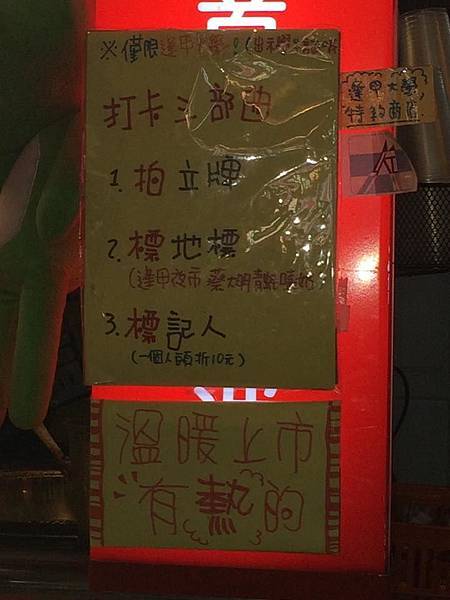 ※僅限逢甲大學
打卡三部曲
1.拍立牌
2.標地標
(逢甲夜市
3.標記人
(一個人頭折10元)
溫暖上市
有熱的
逢甲大學
特約商店